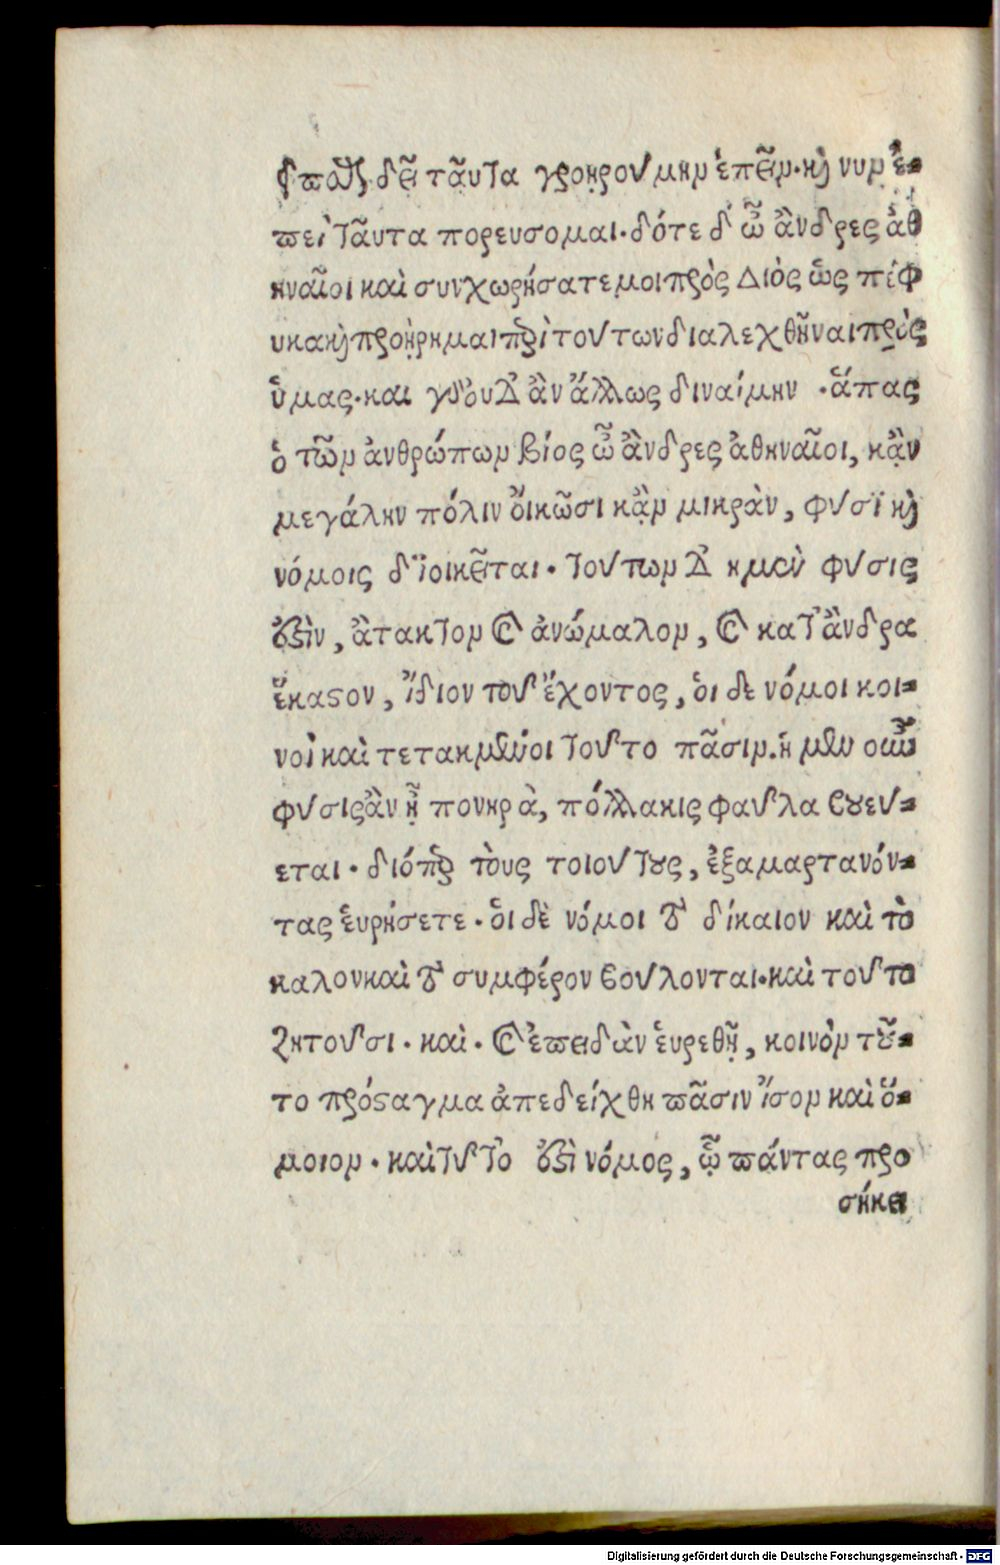 δεῖ ταῦτα προῃρούμην ἐπεῖν· κὴ νυν ἐ-
πεὶ ταῦτα πορευσομαι· δότε δ' ὦ ἂνδρες ἀθ
ηναῖοι καὶ συνχωρήσατε μοι πρὸς Διὸς ὡς πέφ
υκα κὴ προῄρημαι περὶ τούτων διαλεχθῆναι πρὸς
ὑμας· και γὰρ οὐδ' ἂν ἄλλως διναίμην · ἅπας
ὁ τῶν ἀνθρώπων βίος ὦ ἂνδρες ἀθηναῖοι, κἂν
μεγάλην πόλιν ὄικῶσι κἂν μικρὰν, φύσϊ κὴ
νόμοις δϊοικεῖται· τούτων δ' η μεν φύσις
ἐστὶν, ἂτακτον καὶ ἀνώμαλον, καὶ κατ' ἂνδρα
ἕκαστον, ἴδιον τοῦ ἔχοντος, ὁι δε νόμοι κοι-
νοὶ καὶ τετακμένοι τοῦτο πᾶσιν. ἡ μεν οὖν
φύσις ἂν ᾖ πονηρὰ, πόλλακις φαῦλα βουεύ-
εται· διόπερ τοὺς τοιούτους, ἐξαμαρτανόν-
τας ἑυρήσετε· ὁι δὲ νόμοι τὸ δίκαιον καὶ τὸ
καλον καὶ τὸ συμφέρον βούλονται· καὶ τοῦτο
ζητοῦσι· καὶ· καὶ ἐπειδὰν ἑυρεθῇ, κοινὸν τοῦ-
το πρόσταγμα ἀπεδείχθη πᾶσιν ἴσον καὶ ὅ-
μοιον· καὶ τοῦτο ἐστὶ νόμος, ᾧ πάντας προ
σήκει
Digitalisierung gefördert durch die Deutsche Forschungsgemeinschaft - DFG